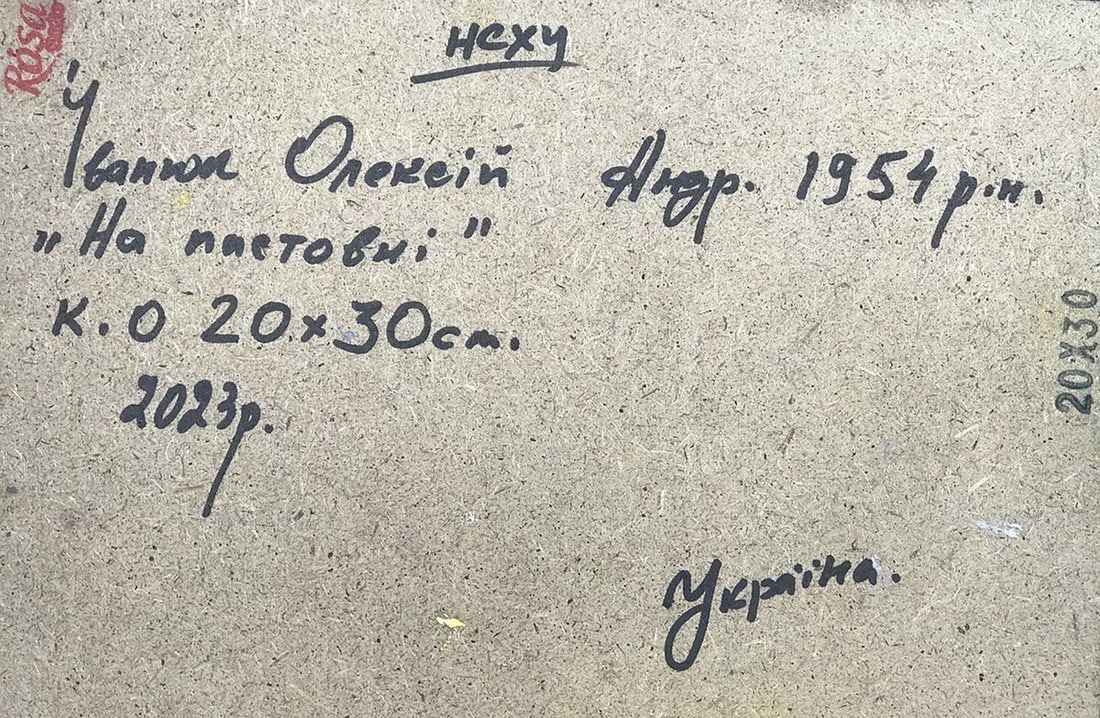 Rósa
нсху
Іванюк Олексій Андр. 1954 р.н.
„На пастовні"
к.о 20х30см.
2023р.
20X30
Україна.